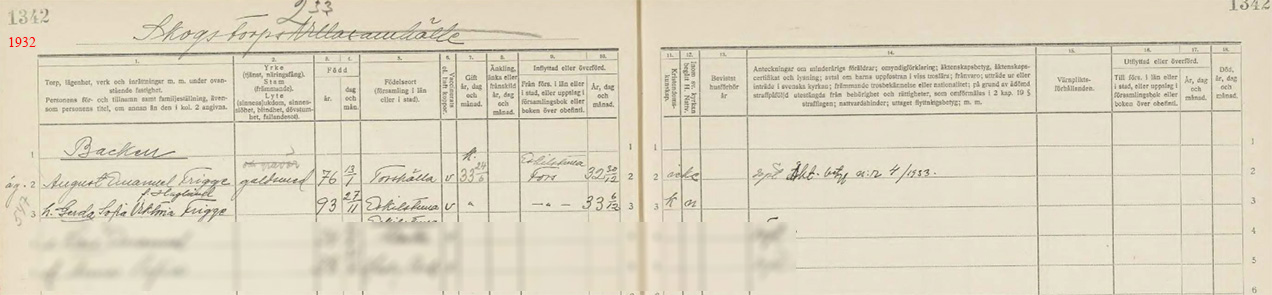 1342
233
1342
1932
Skogstorps Villasamhälle
1.
Torp, lägenhet, verk och inrättningar m. m. under ovanstående fastighet.
Personens för- och tillnamn samt familjeställning, även-
som personens titel, om annan än den i kol. 2 angivna.
2.
Yrke
(tjänst, näringsfång).
Stam
(främmande).
Lyte
(sinnessjukdom, sinnes-
slöhet, blindhet, dövstum-
het, fallandesot).
3.
4.
Född
år.
dag
och
månad.
5.
Födelseort
(församling i län
eller i stad).
6.
Vaccinerad
el. haft koppor.
7.
Gift
år, dag
och
månad.
8.
Änkling,
änka eller
frånskild
år, dag
och
månad.
9.
10.
Inflyttad eller överförd.
Från förs. i län eller
i stad, eller uppslag i
församlingsbok eller
boken över obefintl.
År,
dag
och
månad.
11.
Kristendoms-
kunskap.
12.
13.
Bevistat
husförhör
år
14.
Anteckningar om minderårigs föräldrar; omyndigförklaring; äktenskapsbetyg, äktenskaps-
certifikat och lysning; avtal om barns uppfostran i viss troslära; frånvaro; utträde ur eller
inträde i svenska kyrkan; främmande trosbekännelse eller nationalitet; på grund av ådömd
straffpåföljd utestängda från behörighet och rättigheter, som omförmäles i 2 kap. 19 §
strafflagen; nattvardshinder; uttaget flyttningsbetyg; m. m.
15.
Värnplikts-
förhållanden.
16.
17.
Utflyttad eller överförd.
Till förs. i län eller
i stad, eller uppslag i
församlingsbok eller
boken över obefintl.
År, dag
och
månad.
18.
Död,
år, dag
och
månad.
1 Backen 1 1 1
2 August Emanuel Frigge guldsmed 76 13/1 Torshälla v 33 24/6 Eskilstuna Fors 32 30/12 2 2 2
f. Haglund
547
3 h. Gerda Sofia Viktoria Frigge 93 27/11 Eskilstuna v " 33 6/12 3 3 3
4
5
6